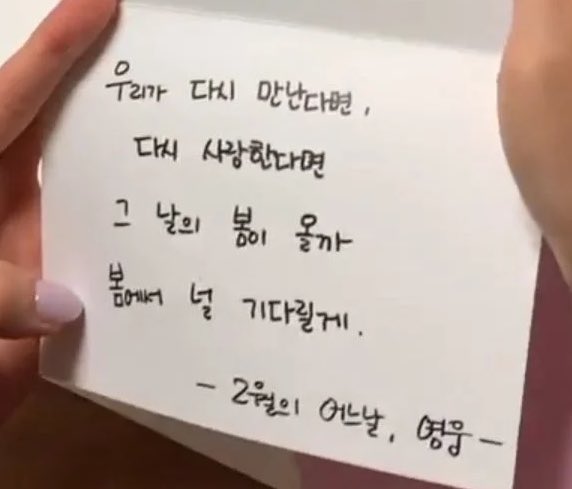 우리가 다시 만난다면,
다시 사랑한다면
그 날의 봄이 올까
봄에서 널 기다릴게.
- 2월의 어느날, 영웅 -